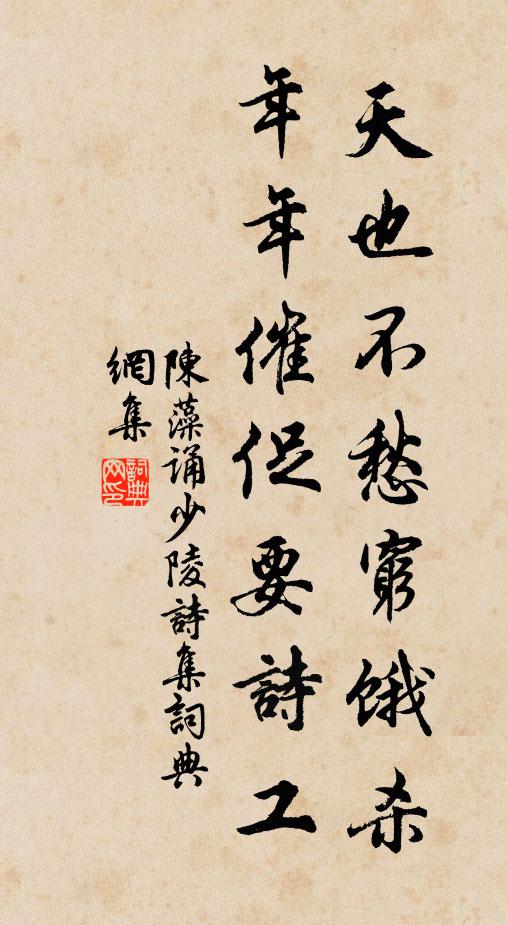 天也不愁窮餓杀
年年催促要詩工
陳藻誦少陵詩集詞典
網集
詞典網印